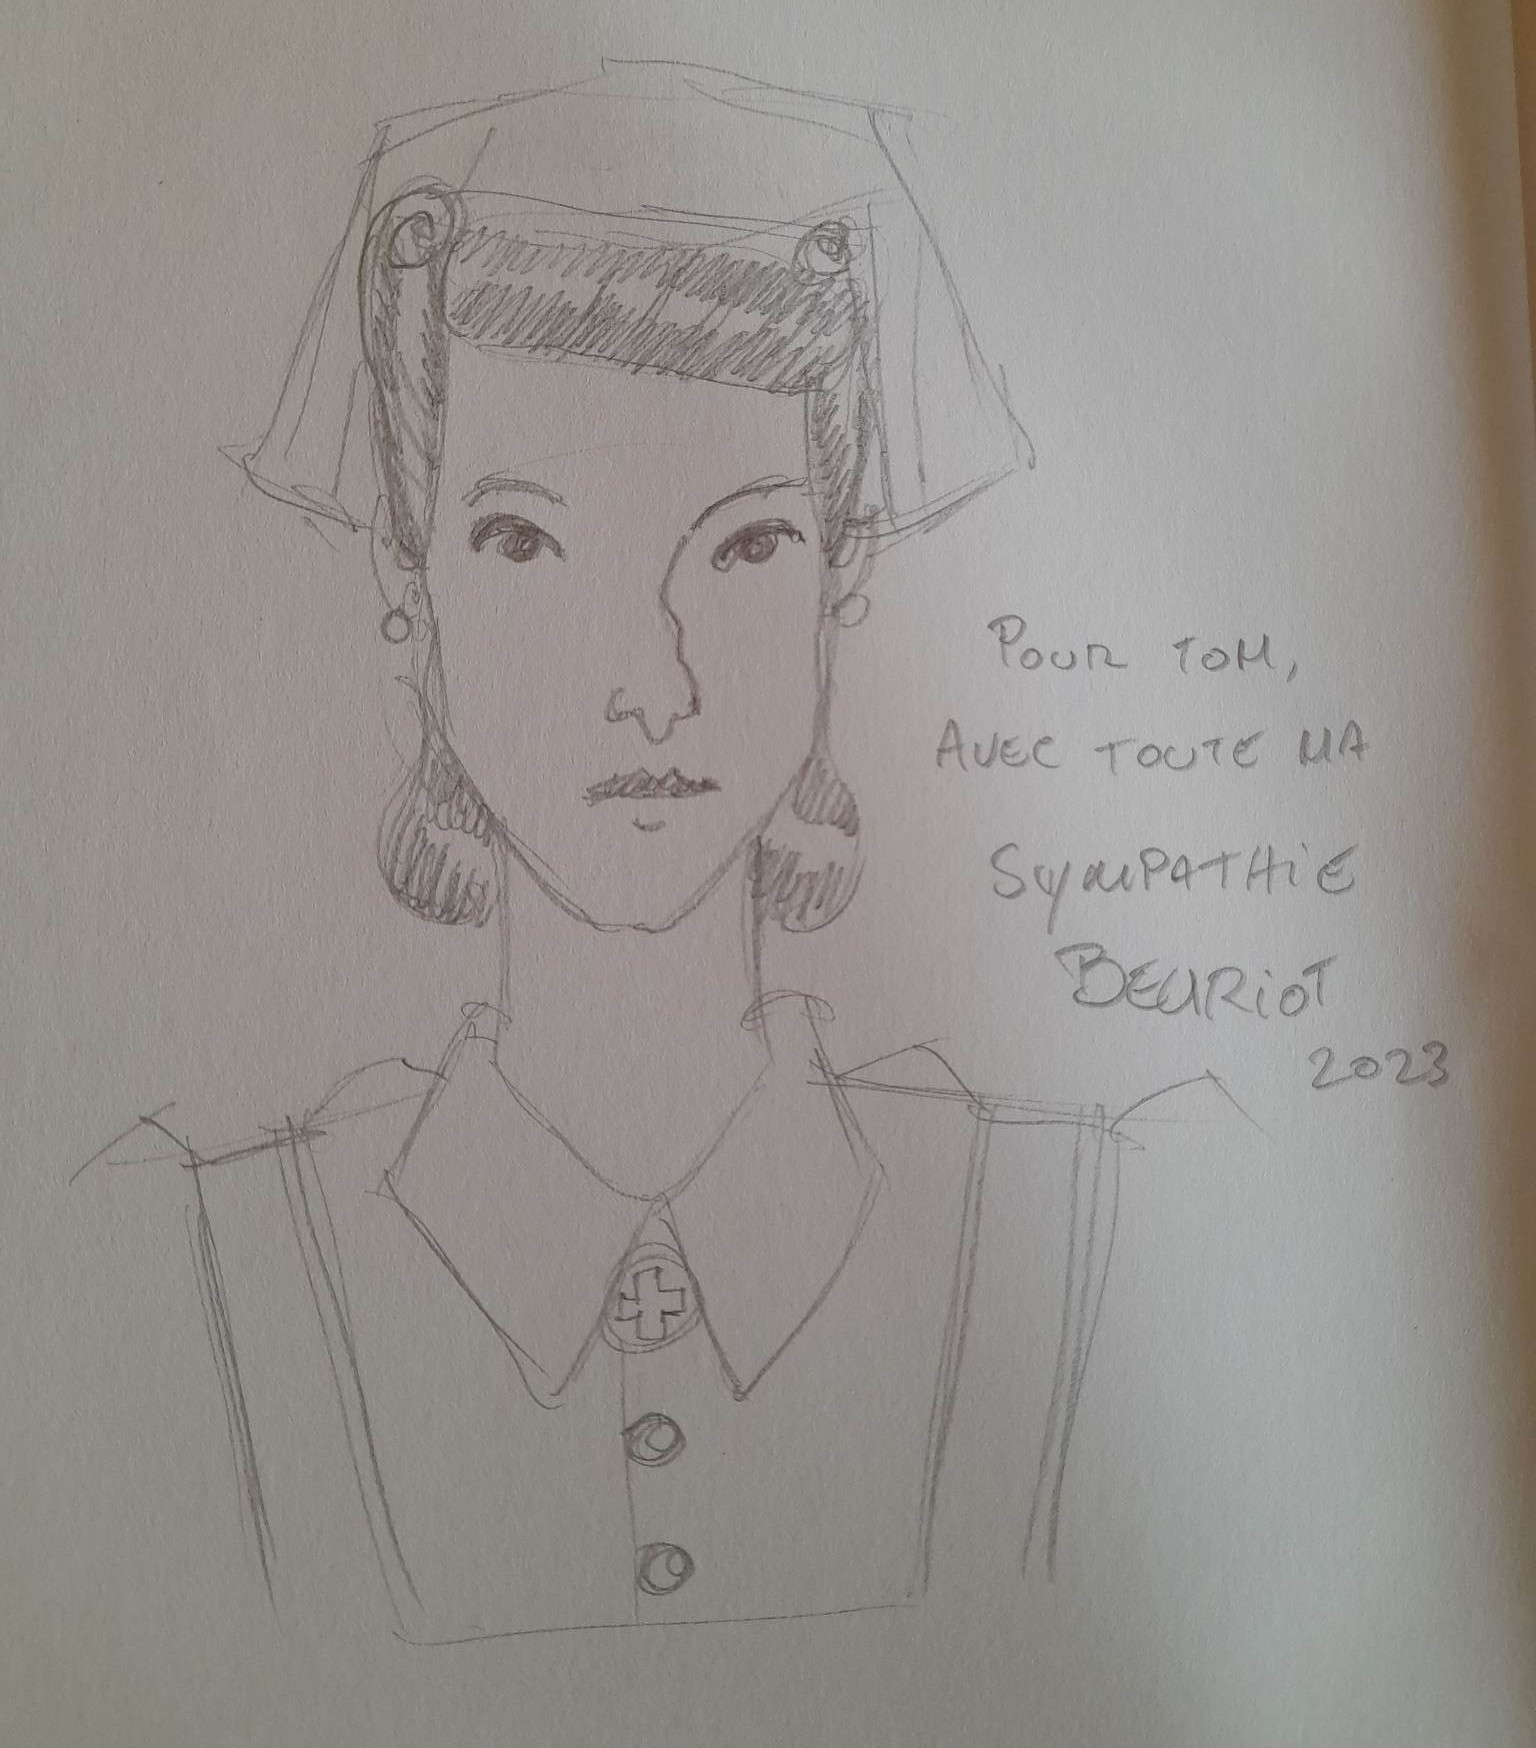 POUR TOM,
AVEC TOUTE MA
SYMPATHIE
BEURIOT
2023